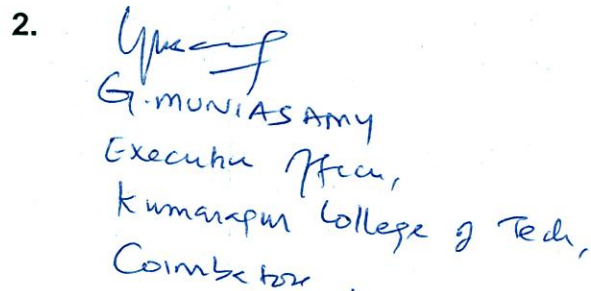 2.
G. MUNIASAMY
Executive Officer,
Kumaraguru College of Tech,
Coimbatore.